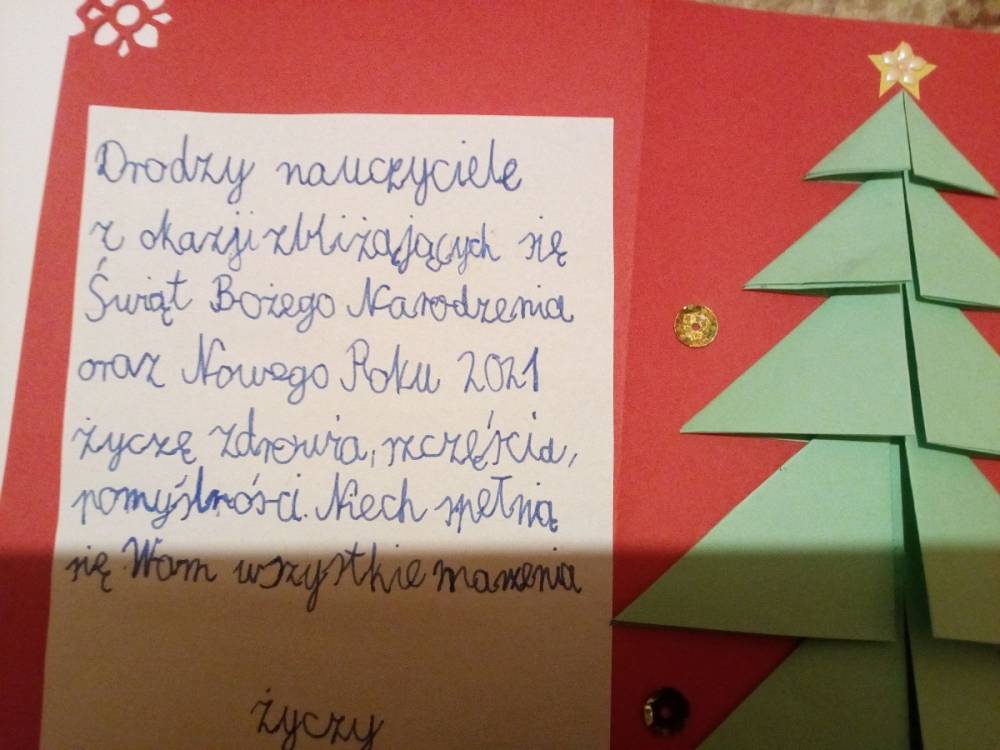 Drodzy nauczyciele
z okazji zbliżających się
Świąt Bożego Narodzenia
oraz Nowego Roku 2021
życzę zdrowia, szczęścia,
pomyślności. Niech spełnią
się Wam wszystkie marzenia
życzy